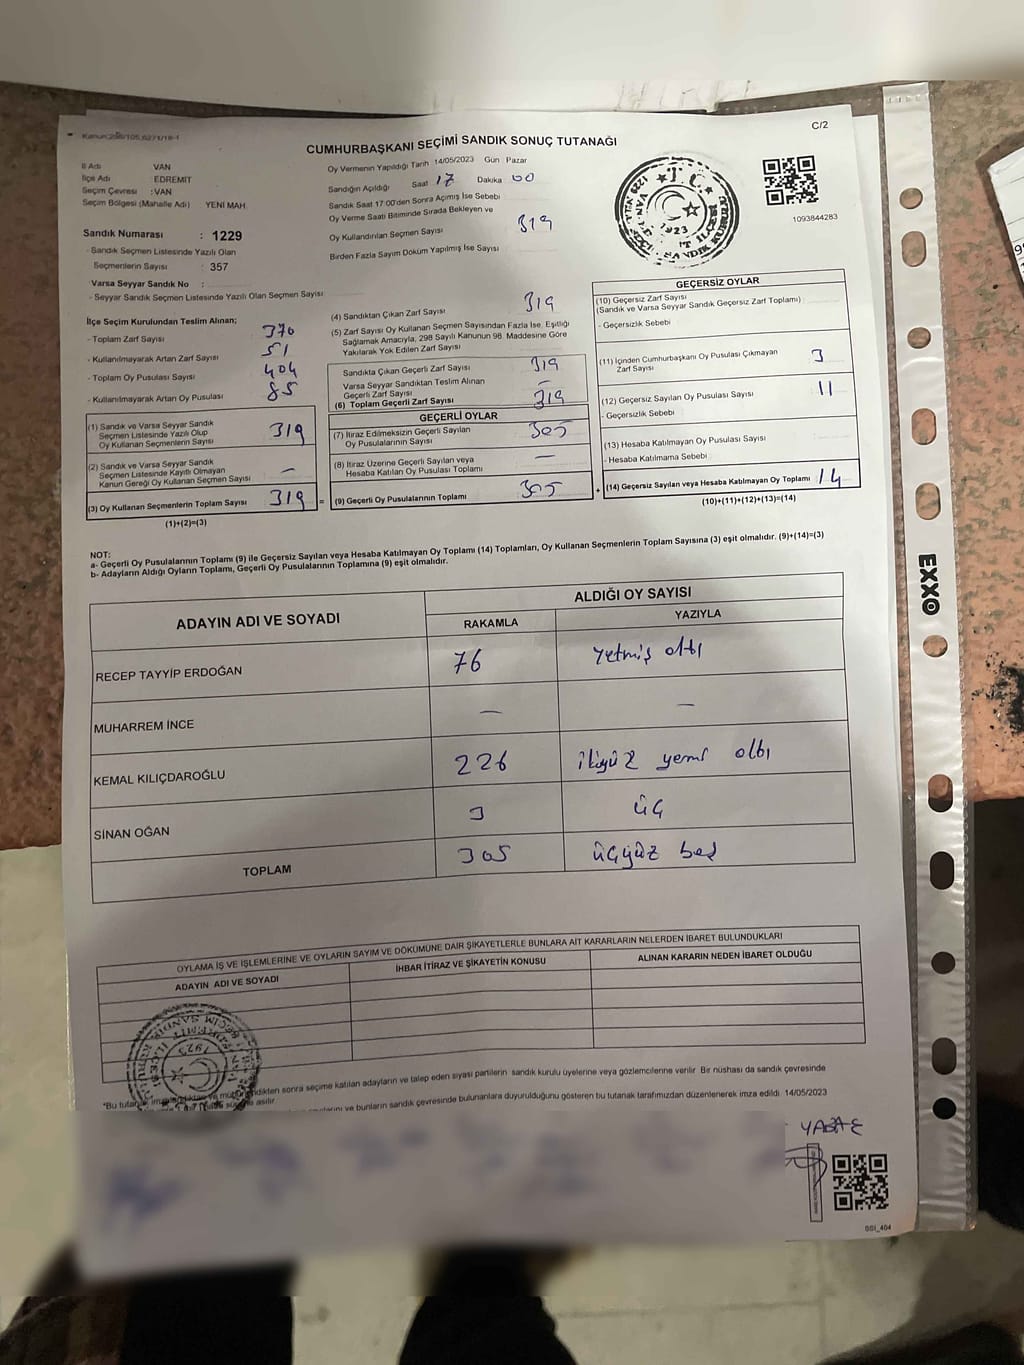 C/2
CUMHURBAŞKANI SEÇİMİ SANDIK SONUÇ TUTANAĞI
İl Adı : VAN
İlçe Adı : EDREMİT
Seçim Çevresi : VAN
Seçim Bölgesi (Mahalle Adı) YENİ MAH.
Sandık Numarası : 1229
- Sandık Seçmen Listesinde Yazılı Olan
Seçmenlerin Sayısı : 357
Varsa Seyyar Sandık No :
- Seyyar Sandık Seçmen Listesinde Yazılı Olan Seçmen Sayısı
Oy Vermenin Yapıldığı Tarih 14/05/2023 Gün Pazar
Sandığın Açıldığı Saat 17 Dakika 00
Sandık Saat 17:00'den Sonra Açılmış İse Sebebi
Oy Verme Saati Bitiminde Sırada Bekleyen ve
Oy Kullandırılan Seçmen Sayısı 319
Birden Fazla Sayım Döküm Yapılmış İse Sayısı
1093844283
İlçe Seçim Kurulundan Teslim Alınan;
- Toplam Zarf Sayısı 370
- Kullanılmayarak Artan Zarf Sayısı 51
- Toplam Oy Pusulası Sayısı 404
- Kullanılmayarak Artan Oy Pusulası 85
(1) Sandık ve Varsa Seyyar Sandık
Seçmen Listesinde Yazılı Olup
Oy Kullanan Seçmenlerin Sayısı 319
(2) Sandık ve Varsa Seyyar Sandık
Seçmen Listesinde Kayıtlı Olmayan
Kanun Gereği Oy Kullanan Seçmen Sayısı —
(3) Oy Kullanan Seçmenlerin Toplam Sayısı 319 =
(1)+(2)=(3)
(4) Sandıktan Çıkan Zarf Sayısı 319
(5) Zarf Sayısı Oy Kullanan Seçmen Sayısından Fazla İse, Eşitliği
Sağlamak Amacıyla, 298 Sayılı Kanunun 98. Maddesine Göre
Yakılarak Yok Edilen Zarf Sayısı
Sandıkta Çıkan Geçerli Zarf Sayısı 319
Varsa Seyyar Sandıktan Teslim Alınan
Geçerli Zarf Sayısı —
(6) Toplam Geçerli Zarf Sayısı 319
GEÇERLİ OYLAR
(7) İtiraz Edilmeksizin Geçerli Sayılan
Oy Pusulalarının Sayısı 305
(8) İtiraz Üzerine Geçerli Sayılan veya
Hesaba Katılan Oy Pusulası Toplamı —
(9) Geçerli Oy Pusulalarının Toplamı 305 +
GEÇERSİZ OYLAR
(10) Geçersiz Zarf Sayısı
(Sandık ve Varsa Seyyar Sandık Geçersiz Zarf Toplamı)
- Geçersizlik Sebebi
(11) İçinden Cumhurbaşkanı Oy Pusulası Çıkmayan
Zarf Sayısı 3
(12) Geçersiz Sayılan Oy Pusulası Sayısı 11
- Geçersizlik Sebebi
(13) Hesaba Katılmayan Oy Pusulası Sayısı
- Hesaba Katılmama Sebebi
(14) Geçersiz Sayılan veya Hesaba Katılmayan Oy Toplamı 14
(10)+(11)+(12)+(13)=(14)
NOT:
a- Geçerli Oy Pusulalarının Toplamı (9) ile Geçersiz Sayılan veya Hesaba Katılmayan Oy Toplamı (14) Toplamları, Oy Kullanan Seçmenlerin Toplam Sayısına (3) eşit olmalıdır. (9)+(14)=(3)
b- Adayların Aldığı Oyların Toplamı, Geçerli Oy Pusulalarının Toplamına (9) eşit olmalıdır.
ADAYIN ADI VE SOYADI ALDIĞI OY SAYISI
RAKAMLA YAZIYLA
RECEP TAYYİP ERDOĞAN 76 yetmiş altı
MUHARREM İNCE — —
KEMAL KILIÇDAROĞLU 226 ikiyüz yirmi altı
SİNAN OĞAN 3 üç
TOPLAM 305 üçyüz beş
OYLAMA İŞ VE İŞLEMLERİNE VE OYLARIN SAYIM VE DÖKÜMÜNE DAİR ŞİKAYETLERLE BUNLARA AİT KARARLARIN NELERDEN İBARET BULUNDUKLARI
ADAYIN ADI VE SOYADI İHBAR İTİRAZ VE ŞİKAYETİN KONUSU ALINAN KARARIN NEDEN İBARET OLDUĞU
sonra seçime katılan adayların ve talep eden siyasi partilerin sandık kurulu üyelerine veya gözlemcilerine verilir. Bir nüshası da sandık çevresinde
asılır.
ve bunların sandık çevresinde bulunanlara duyurulduğunu gösteren bu tutanak tarafımızdan düzenlenerek imza edildi. 14/05/2023
EXXO